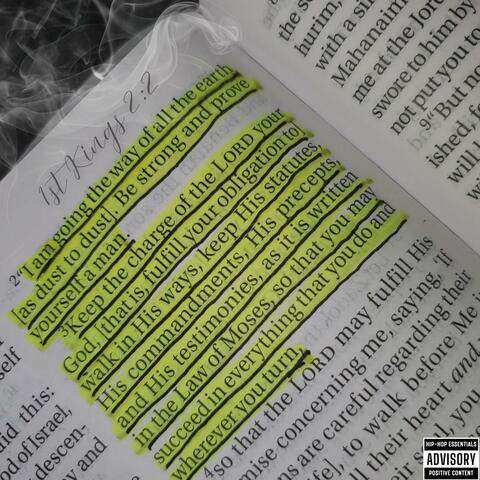 1st Kings 2:2
2 "I am going the way of all the earth
[as dust to dust]. Be strong and prove
yourself a man.
3 Keep the charge of the LORD your
God, [that is, fulfill your obligation to]
walk in His ways, keep His statutes,
His commandments, His precepts,
and His testimonies, as it is written
in the Law of Moses, so that you may
succeed in everything that you do and
wherever you turn,
4 so that the LORD may fulfill His
promise concerning me, saying, 'If
are careful regarding their
to walk before Me i
all their heart and
soul, you
self
this:
of Israel,
descen-
and
the so
hurim,
with a si
Mahanaim
me at the Jord
swore to him by
not put you to
"But no
ished, f
will
HIP-HOP ESSENTIALS
ADVISORY
POSITIVE CONTENT